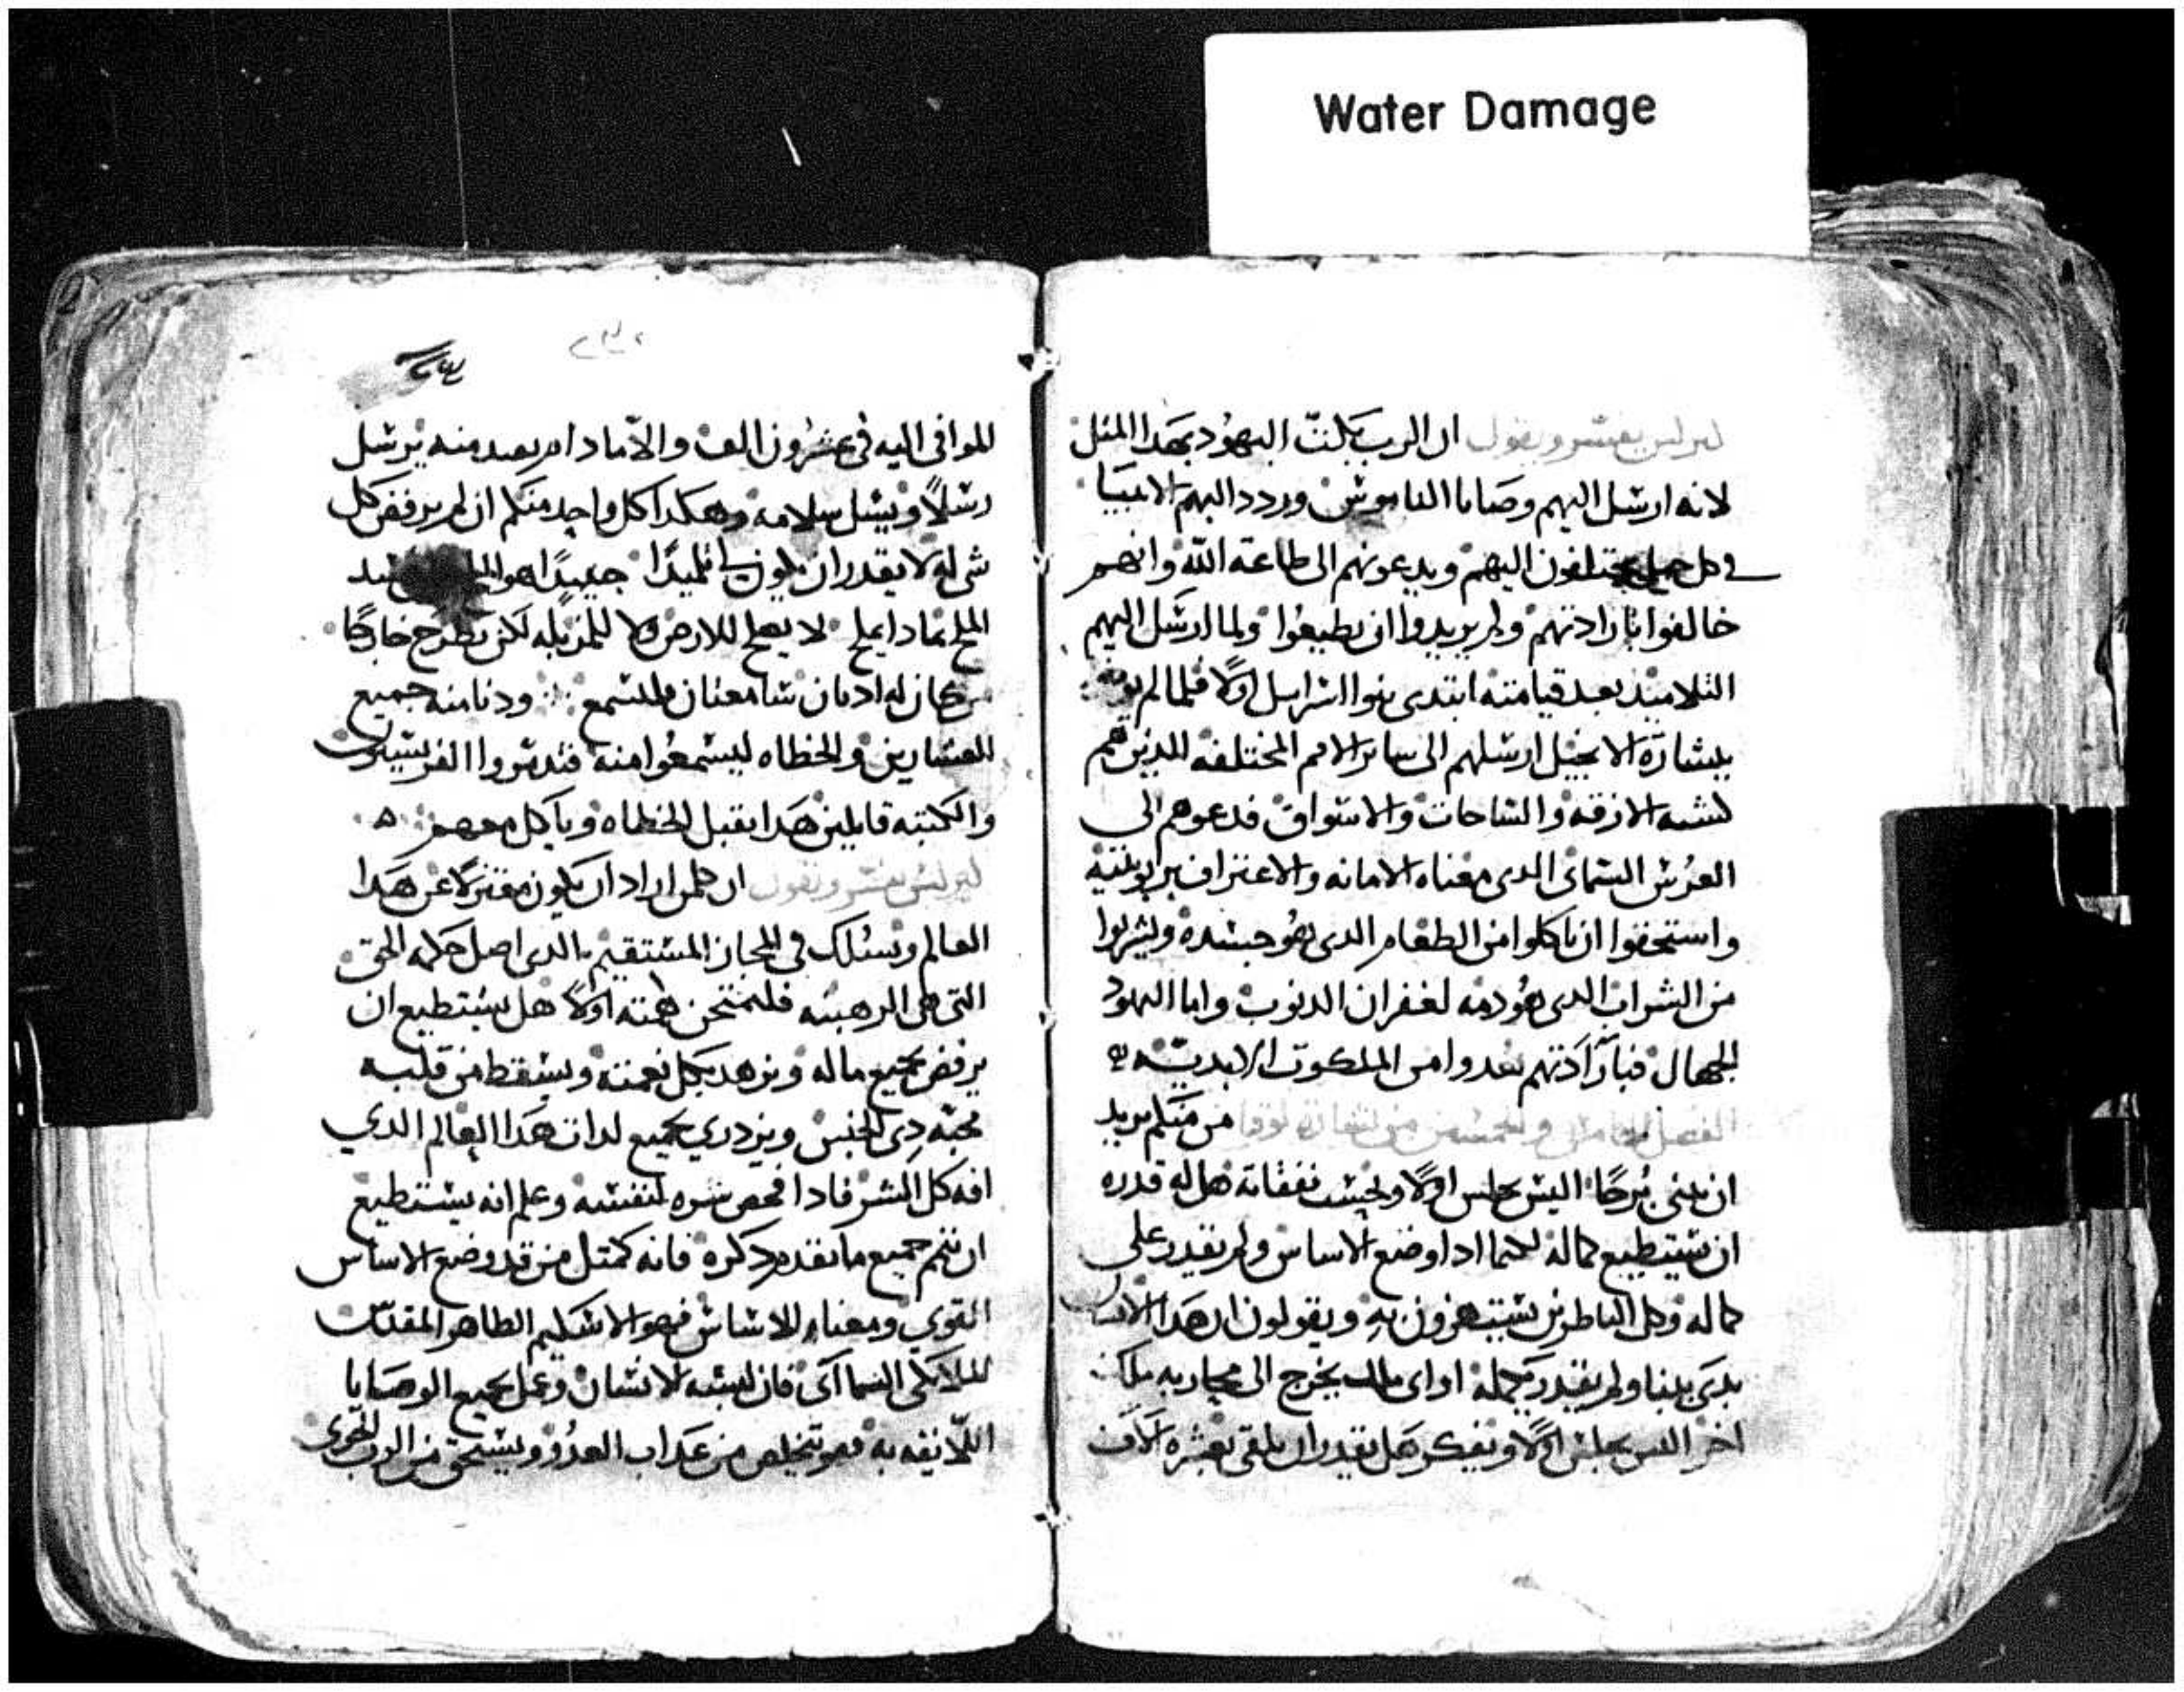 Water Damage
كيرلس يفسر ويقول ان الرب بكت اليهود بهدا المثل
لانه ارسل اليهم وصايا الناموس وردد اليهم الانبيا
في كل جيل يختلفون اليهم ويدعونهم الى طاعة الله وانهم
خالفوا بارادتهم ولم يريدوا ان يطيعوا ولما ارسل اليهم
التلاميد بعد قيامته ابتدى ببنوا اسرايل اولا فلما لم
ببشارة الانجيل ارسلهم الى ساير الامم المختلفه الدين هم
كشبه الازقه والساحات والاسواق فدعوهم الى
العرس السماى الدى معناه الامانه والاعتراف بربوبيته
واستحقوا ان ياكلوا من الطعام الدى هو جسده ويشربوا
من الشراب الدى هو دمه لغفران الدنوب واما اليهود
الجهال فبارادتهم بعدوا من الملكوت الابديه
الفصل الخامس والخمسين من بشارة لوقا من منكم يريد
ان يبنى برجا اليس يجلس اولا ويحسب نفقاته هل له قدره
ان يستطيع كماله لكيما ادا وضع الاساس ولم يقدر على
كماله وكل الناظرين يستهزون به ويقولون ان هدا الانسان
بدى يبنا ولم يقدر يكمله او اى ملك يخرج الى محاربه ملك
اخر اليس يجلس اولا ويفكر هل يقدر ان يلقى بعشره الاف
٢٣٢
الموافى اليه فى عشرون الف والا ما دام بعيد منه يرسل
رسلا ويسل سلامه وهكدا كل واحد منكم ان لم يرفض كل
شى له لا يقدر ان يكون لي تلميدا جيدا هو الملح
الملح بمادا يملح لا يصلح للارض ولا للمزبله لكن يطرح خارجا
من كان له ادنان سامعتان فليسمع ودنا منه جميع
العشارين والخطاه ليسمعوا منه فتدمروا الفريسيون
والكتبه قايلين هدا يقبل الخطاه وياكل معهم
كيرلس يفسر ويقول ان كلمن اراد ان يكون معتزلا عن هدا
العالم ويسلك في المجاز المستقيم الدى اصل حكمه الحق
التى هى الرهبنه فليمتحن همته اولا هل يستطيع ان
يرفض بجميع ماله ويزهد بكل نعمته ويسقط من قلبه
محبه دى الجنس ويزدري بجميع لدات هدا العالم الدي
افه كل الشر فادا فحص سره لنفسه وعلم انه يستطيع
ان يتم جميع ما تقدم دكره فانه كمتل من قد وضع الاساس
القوي ومعناه للاساس فهو الاسكيم الطاهر المقدس
الملايكى السماآى فان لبسه الانسان وعمل بجميع الوصايا
اللايقه به فهو يتخلص من عداب العدو ويستحق من الرب